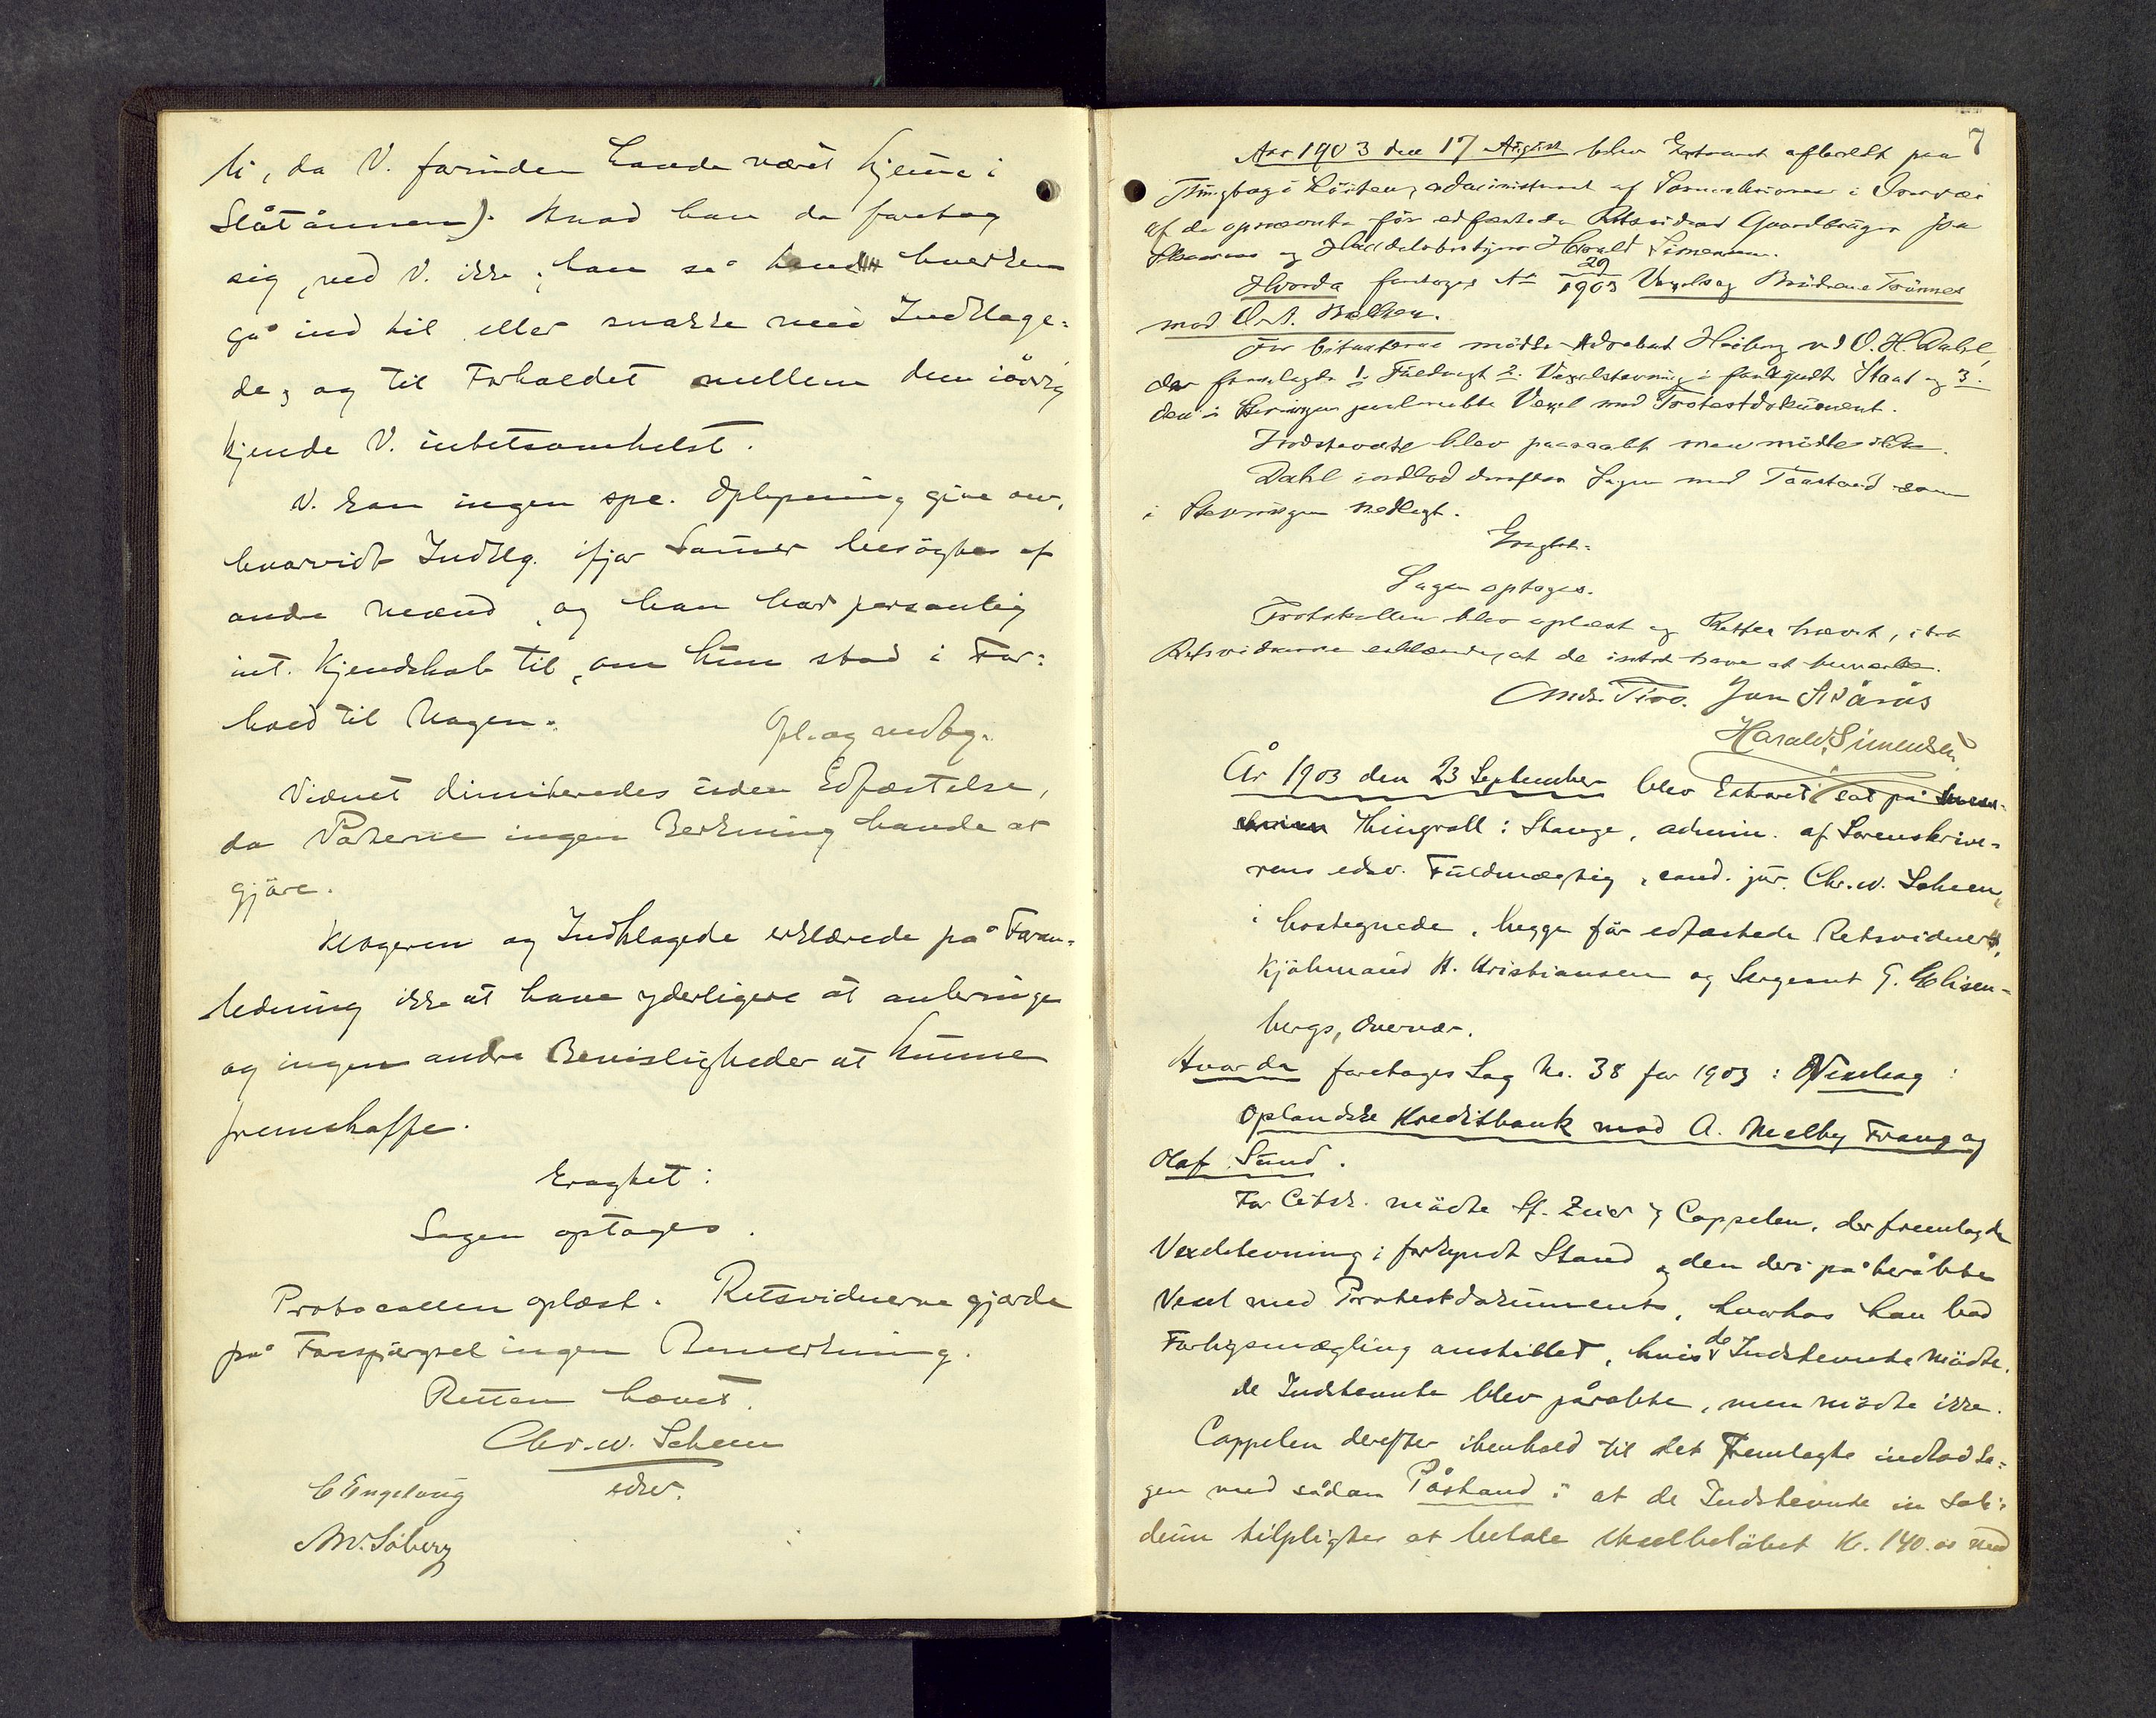 ti, da V. forinden havde været hjemme i
Slåtånnen). Hvad han da foretog
sig, ved V. ikke; han så ham hverken
gå ind til eller snakke med Indklage-
de, og til Forholdet mellem dem iøvrig
kjende V. intetsomhelst.
V. kan ingen spe. Oplysning give om,
hvorvidt Indklg. ifjor Sommer besøgtes af
andre Mænd, og han har personlig
int. Kjendskab til, om hun stod i For-
hold til Hagen.
Opl. og vedtg.
Vidnet dimitteredes uden Edfæstelse,
da Parterne ingen Bemerkning havde at
gjøre.
Klageren og Indklagede erklærede på Foran-
ledning ikke at have yderligere at anbringe
og ingen andre Bevisligheder at kunne
fremskaffe.
Eragtet:
Sagen optages.
Protocollen oplæst. Retsvidnerne gjorde
på Forespørgsel ingen Bemerkning.
Retten hævet.
Chr. W. Scheen
edsv.
C Engelaug
M. Soberg
7
Aar 1903 den 17 August blev Extraret afholdt paa
Thingbøg i Løiten, administreret af Sorenskriveren i Overvær
af de opnævnte før edfæstede Retsvidner Gaardbruger Jon
Skaaraas og Handelsbestyrer Harald Simensen.
Hvorda foretoges No 29/1903 Vexelsag Brødrene Trønnes
mod
For Citanterne mødte Advokat Heiberg ved O. H. Dahl,
der fremlagde 1. Fuldmagt 2. Vexelstevning i forkyndt Stand og 3.
den i Stevningen paaberaabte Vexel med Protestdokument.
Indstevnte blev paaraabt men mødte ikke.
Dahl indlod derefter Sagen med Paastand som
i Stevningen nedlagt.
Eragtet:
Sagen optages.
Protokollen blev oplæst og Retten hævet, idet
Retsvidnerne erklærede, at de intet have at bemerke.
Andr. Piro. Jon Skårås
Harald Simensen
År 1903 den 23 September blev Extraret sat på
Thingvoll i Stange, admin. af Sorenskrive-
rens edsv. Fuldmægtig, cand. jur. Chr. W. Scheen,
i hostegnede, begge før edfæstede Retsvidners,
Kjøbmand H. Kristiansen og Sergeant G. Elisen-
bergs, Overvær.
Hvorda foretoges Sag No. 38 for 1903: Vexelsag:
Oplandske Kreditbank mod A. Melby Frang og
Olaf Sund.
For Citstk. mødte Sf. Zeier & Cappelen, der fremlagde
Vexelstevning i forkyndt Stand og den deri påberåbte
Vexel med Protestdokument, hvorhos han bad
Forligsmægling anstillet, hvis de Indstevnte mødte.
de Indstevnte blev påråbte, men mødte ikke.
Cappelen derefter ihenhold til det Fremlagte indlod Sa-
gen med sådan Påstand: at de Indstevnte in soli-
dum tilpligtes at betale Vexelbeløbet Kr. 140.00 med